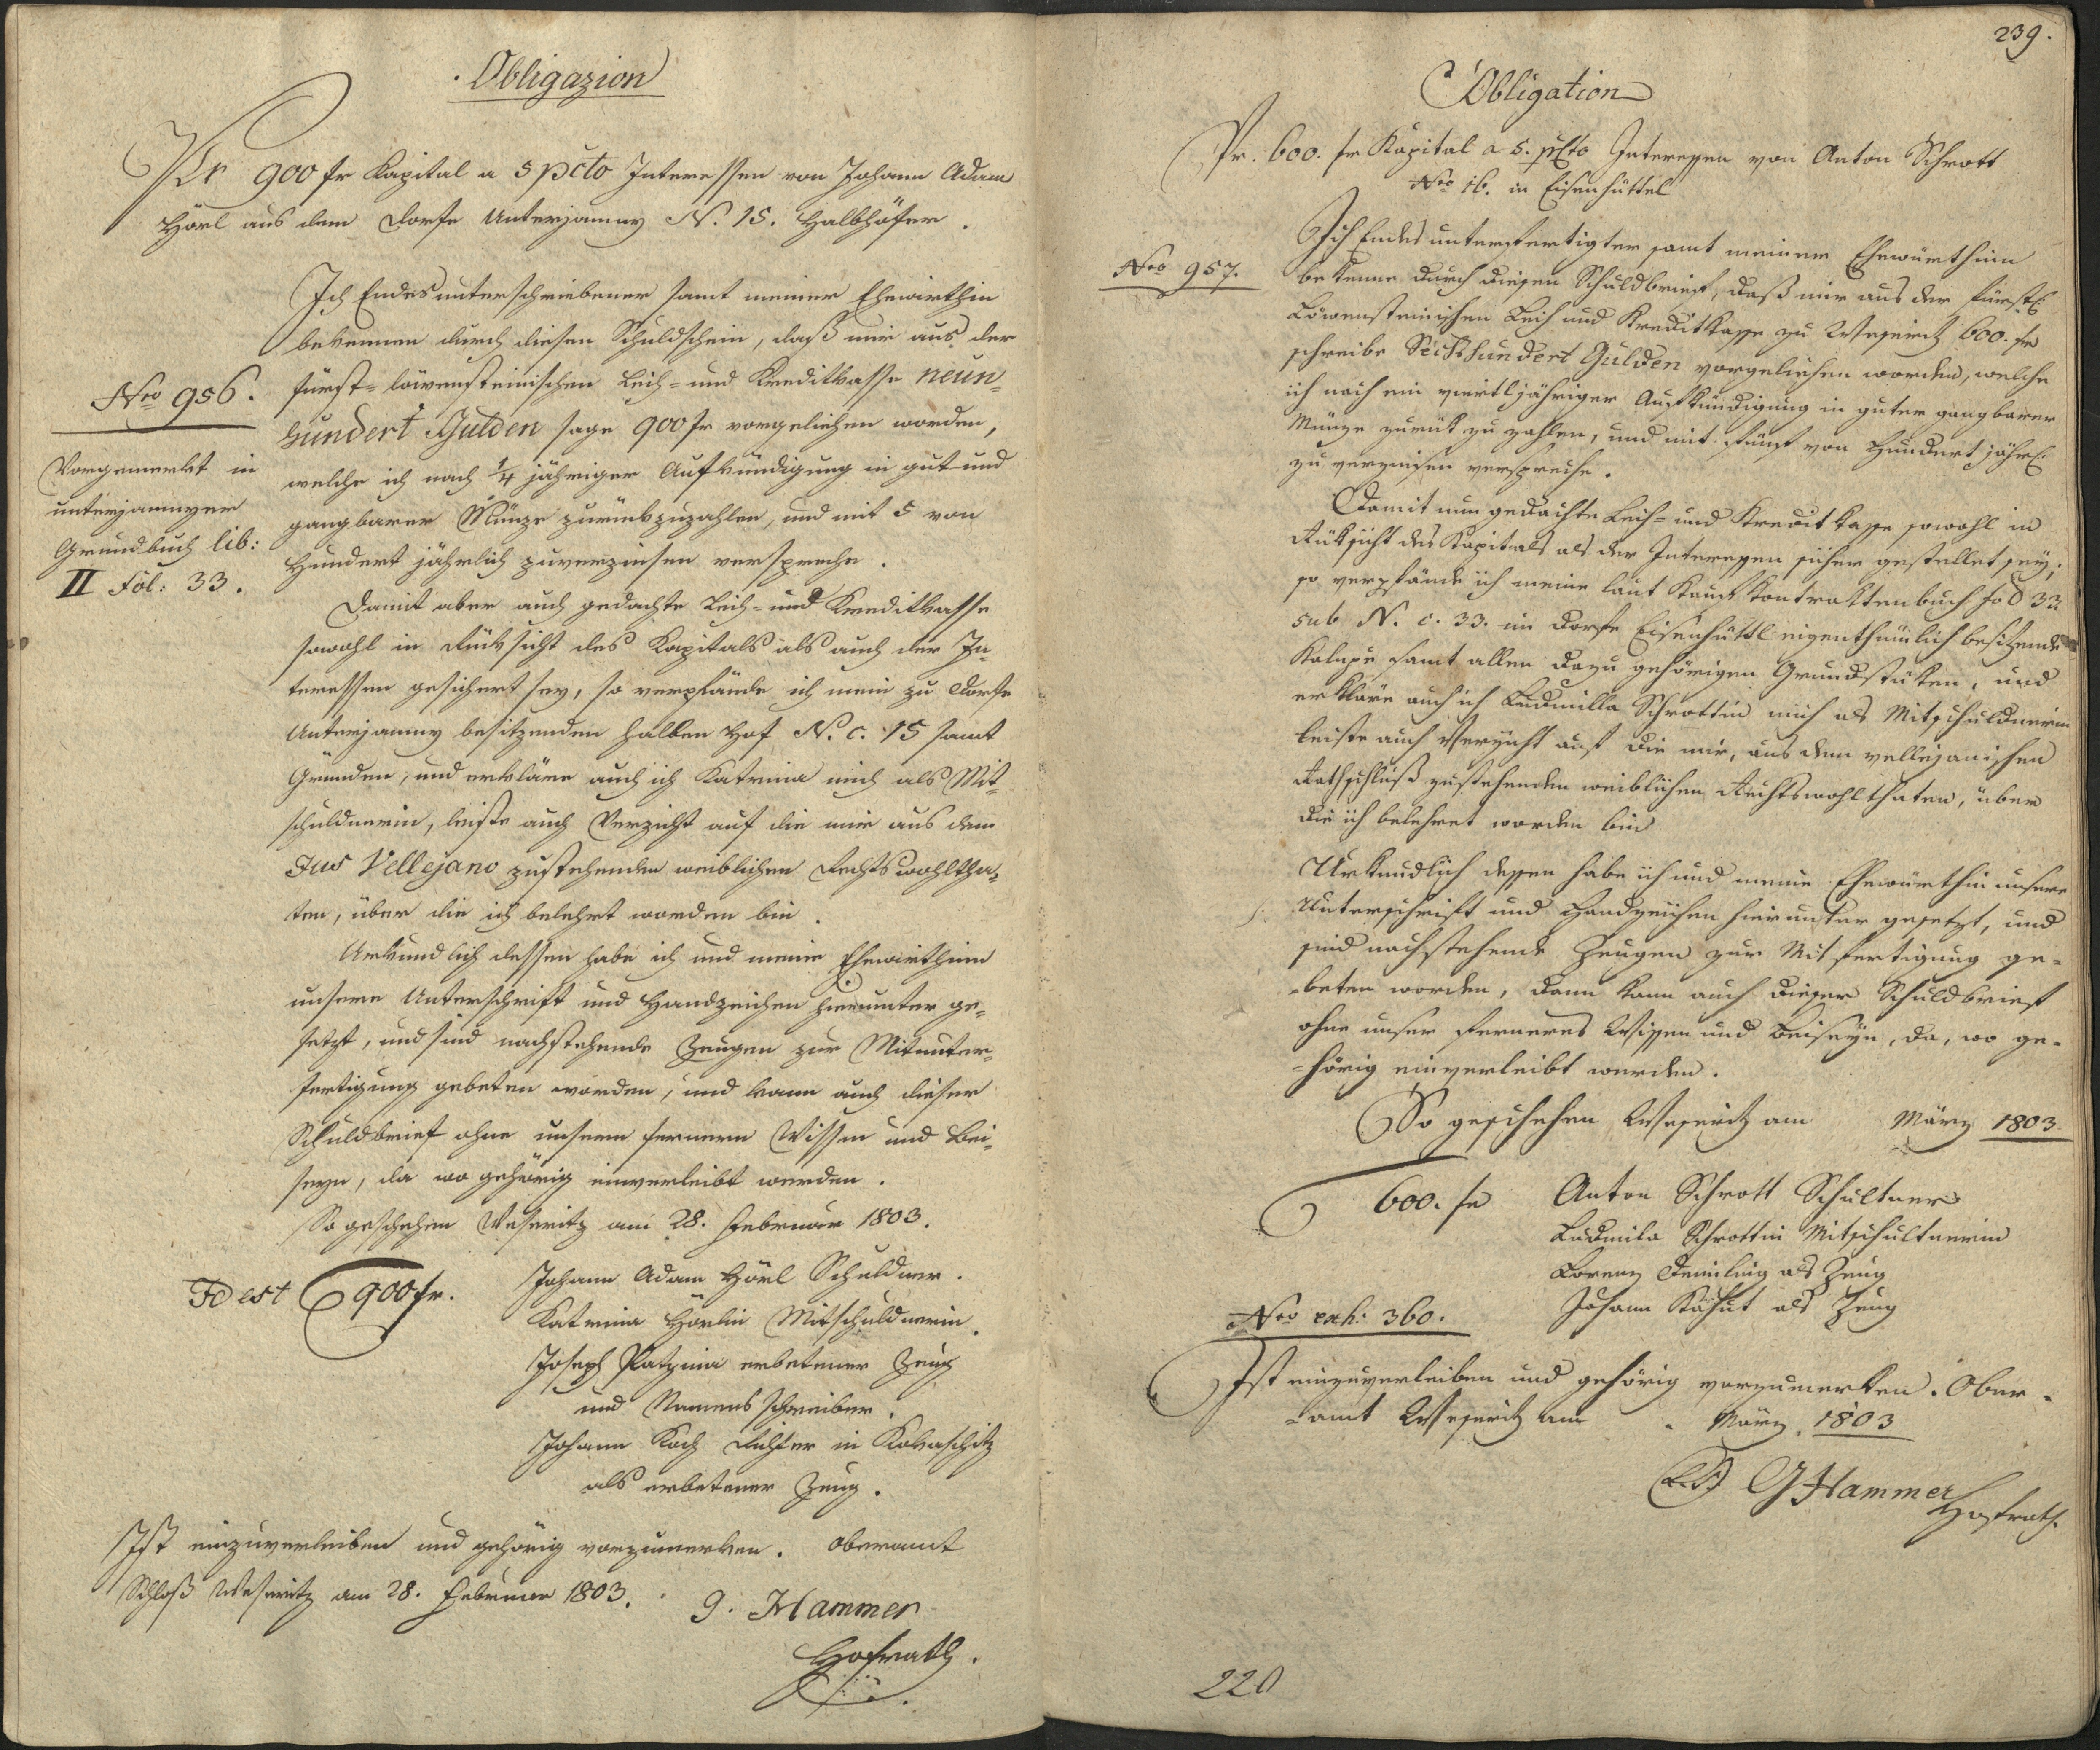 Obligazion
Pr 900 fr Kapital a 5 pcto Interessen von Johann Adam
Hörl aus dem Dorfe Unterjamny N. 15. Halbhöfer.
Ich Endesunterschriebener samt meiner Ehewirthin
bekennen durch diesen Schuldschein, daß mir aus der
Nro 956.
fürst- löwensteinischen Leih- und Kreditkasse neun-
hundert Gulden sage 900 fr vorgeliehen worden,
Vorgemerkt in
unterjamnyer
Grundbuch lib:
II Fol: 33.
welche ich nach 1/4 jähriger Aufkündigung in gut und
gangbarer Münze zurückzuzahlen, und mit 5 von
Hundert jährlich zuverzinsen verspreche.
Damit aber auch gedachte Leih- und Kreditkasse
sowohl in Rücksicht des Kapitals als auch der In-
teressen gesichert sey, so verpfände ich mein zu Dorfe
Unterjamny besitzenden halben Hof N. c. 15 samt
Gründen, und erkläre auch ich Katrina mich als Mit-
schuldnerin, leiste auch Verzicht auf die mir aus dem
Jus Vellejano zustehenden weiblichen Rechtswohltha-
ten, über die ich belehrt worden bin.
Urkundlich dessen habe ich und meine Ehewirthinn
unsere Unterschrift und Handzeichen hierunter ge-
setzt, und sind nachstehende Zeugen zur Mitunter-
fertigung gebeten worden, und kann auch dieser
Schuldbrief ohne unsern fernern Wissen und Bei-
seyn, da wo gehörig einverleibt werden.
So geschehen Weseritz am 28. Februar 1803.
Id est 900 fr.
Johann Adam Hörl Schuldner.
Katrina Hörlin Mitschuldnerin.
Joseph Patzina erbetener Zeug
und Namensschreiber.
Johann Koch Richter in Kokaschitz
als erbetener Zeug.
Ist einzuverleiben und gehörig vorzumerken. Oberamt
Schloß Weseritz am 28. Februar 1803.
G. Hammer
Hofrath.
239.
Obligation
Pr. 600. fr Kapital a 5. pCto Interessen von Anton Schrott
Nro 16. in Eisenhüttel
Nro 957.
Ich Endes unterfertigter samt meiner Ehewürthinn
bekenne durch diesen Schuldbrief, daß mir aus der fürstl.
Löwensteinischen Leih und Kreditkasse zu Weseritz 600. fr
schreibe Sechshundert Gulden vorgeliehen worden, welche
ich nach ein viertljähriger Aufkündigung in guter gangbarer
Münze zurük zu zahlen, und mit fünf von Hundert jährl.
zu verzinsen verspreche.
Damit nun gedachte Leih- und Kreditkasse sowohl in
Rüksicht des Kapitals als der Interessen sicher gestellet sey,
so verpfände ich meine laut Kaufkontraktenbuch Fol 33
sub N. c. 33. im Dorfe Eisenhüttl eigenthümlich besitzende
Kalupe samt allen dazu gehörigen Grundstüken, und
erkläre auch ich Ludmilla Schrottin mich als Mitschuldnerin
leiste auch Verzicht auf die mir, aus dem vellejanischen
Rathschluß zustehenden weiblichen Rechtswohlthaten, über
die ich belehret worden bin
Urkundlich dessen habe ich und meine Ehewürthin unsere
Unterschrift und Handzeichen hierunter gesetzt, und
sind nachstehende Zeugen zur Mitfertigung ge-
-beten worden, dann kann auch dieser Schuldbrief
ohne unser ferneres Wissen und Beiseyn, da, wo ge-
-hörig einverleibt werden.
So geschehen Weseritz am März 1803
600. fr
Anton Schrott Schultner
Ludmila Schrottin Mitschultnerin
Lorenz als Zeug
Johann als Zeug
Nro exh: 360.
Ist einzuverleiben und gehörig vorzumerken. Ober-
-amt Weseritz am März 1803
(L.S.) G Hammer
Hofrath.
220